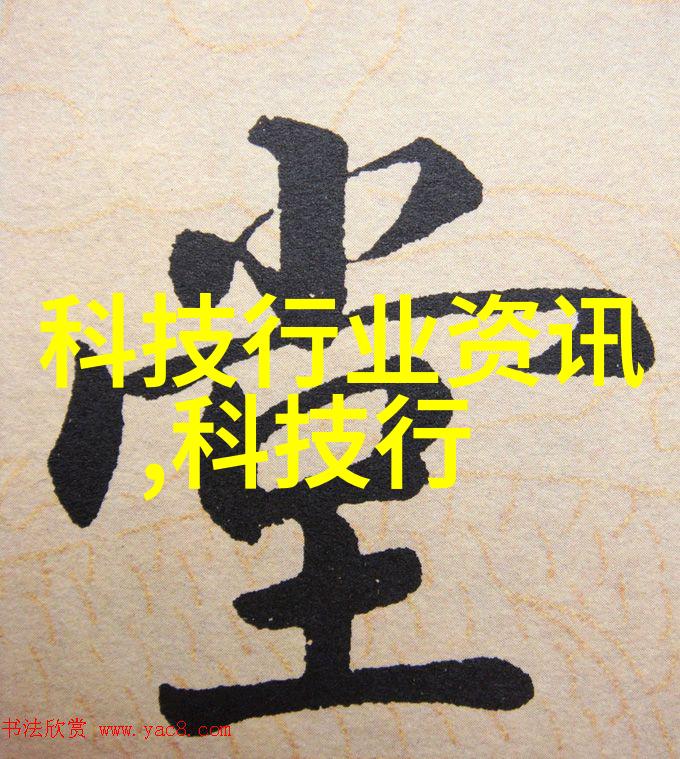 堂
科技行业资讯
,科技行
书法欣赏 www.yac8.com